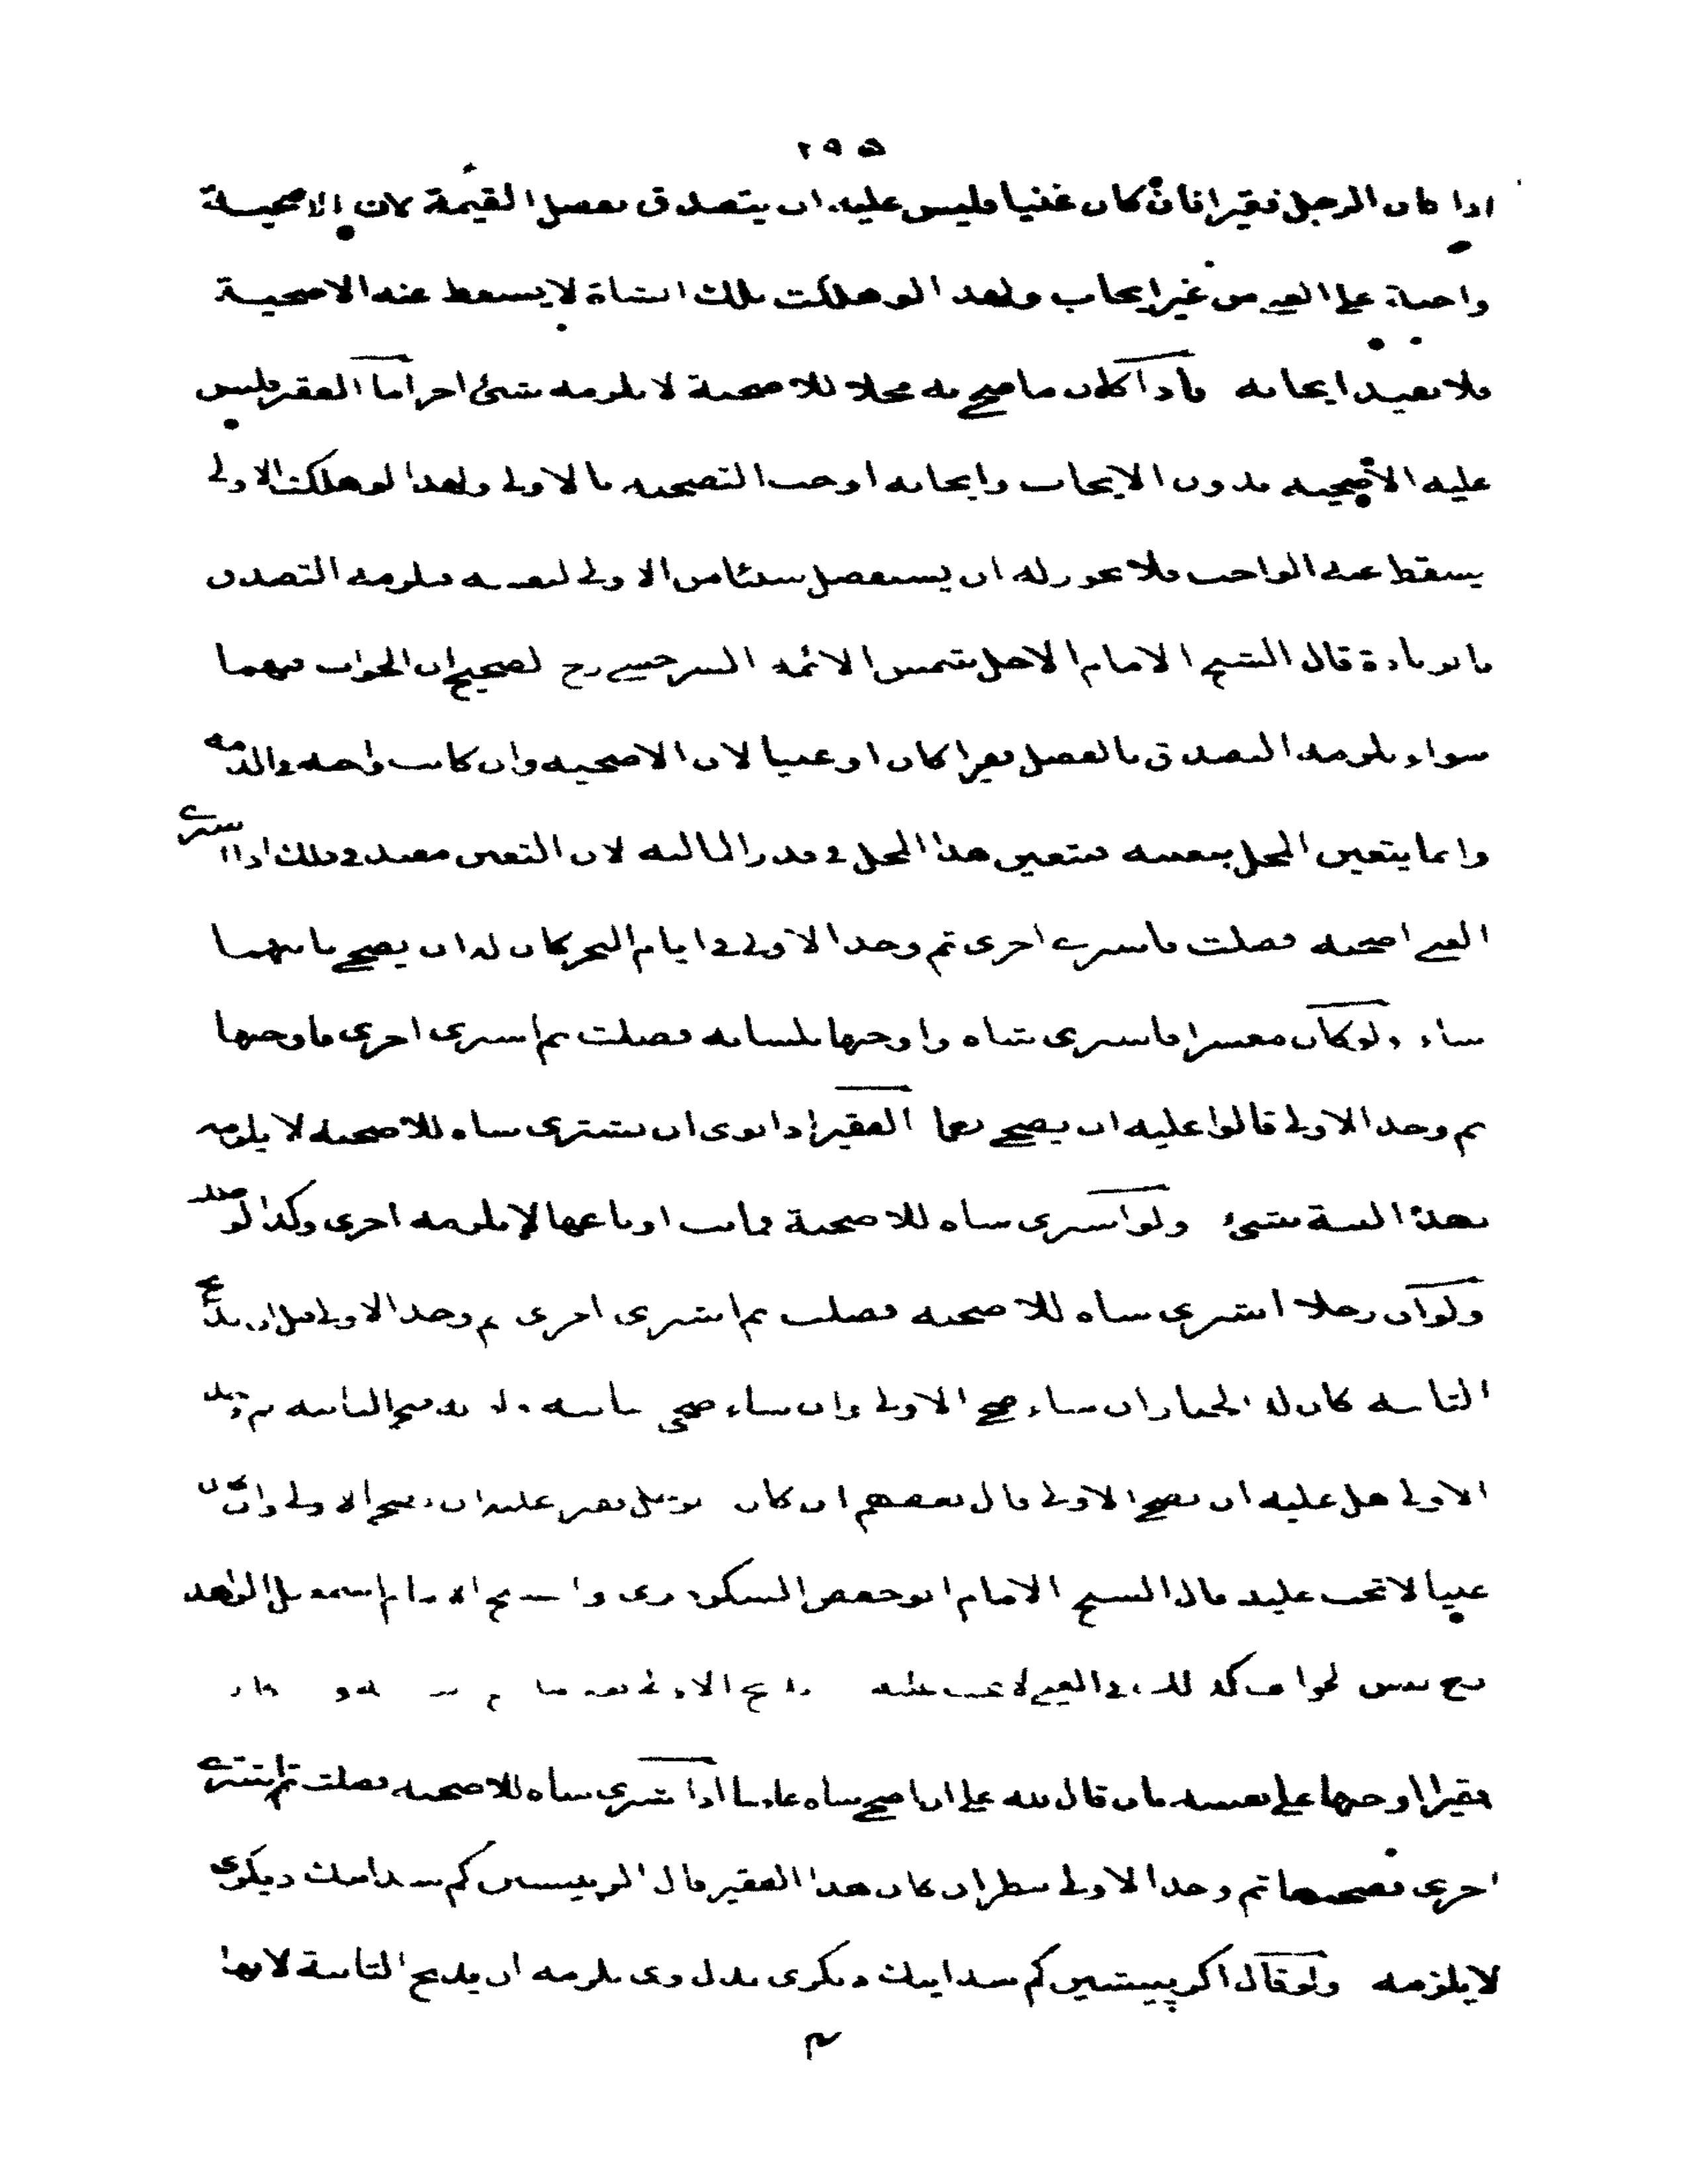 ٢٩٥
اذا كان الرجل فقيرا فان كان غنيا فليس عليه ان يتصدق بفضل القيمة لان الاضحية
واجبة على الغني من غير ايجاب ولهذا لو هلكت تلك الشاة لا يسقط عنه الاضحية
فلا يفيد ايجابه فاذا كان ما ضحى به محلا للاضحية لا يلزمه شئ اخر اما الفقير فليس
عليه الاضحية بدون الايجاب وايجابه اوجب التضحية بالاولى ولهذا لو هلكت الاولى
يسقط عنه الواجب فلا يجوز له ان يستفضل شيئا من الاولى لنفسه فيلزمه التصدق
بالزيادة قال الشيخ الامام الاجل شمس الائمة السرخسي رح الصحيح ان الجواب فيهما
سواء يلزمه التصدق بالفضل فقيرا كان او غنيا لان الاضحية وان كانت واجبة في الذمة
وانما يتعين المحل بنفسه فيتعين هذا المحل في قدر المالية لان التعيين مفيد في ذلك اذا اشترى
الغني اضحية فضلت فاشترى اخرى ثم وجد الاولى في ايام النحر كان له ان يضحي بايهما
شاء ولو كان معسرا فاشترى شاة واوجبها بلسانه فضلت ثم اشترى اخرى فاوجبها
ثم وجد الاولى قالوا عليه ان يضحي بهما الفقير اذا نوى ان يشتري شاة للاضحية لا يلزمه
بهذه النية شئ ولو اشترى شاة للاضحية فماتت او باعها لا يلزمه اخرى وكذا لو ضلت
ولو ان رجلا اشترى شاة للاضحية فضلت ثم اشترى اخرى ثم وجد الاولى قبل ان يذبح
الثانية كان له الخيار ان شاء ضحى الاولى وان شاء ضحى الثانية ذبح الثانية ثم وجد
الاولى هل عليه ان يضحي الاولى قال بعضهم ان كان الرجل فقير عليه ان يضحي الاولى وان كان
غنيا لا تجب عليه قال الشيخ الامام ابو حفص السكودري والشيخ الامام اسمعيل الزاهد
ليس الجواب كذلك في الغني لا يجب عليه ذبح الاولى بعد ما
فقيرا اوجبها على نفسه بان قال لله علي ان اضحي شاة اذا اشترى شاة للاضحية فضلت ثم اشترى
اخرى فضحى بها ثم وجد الاولى ينظر ان كان هذا الفقير قال اكر پيشين كم شد اينك ديكرى
لا يلزمه ولو قال اكر پيشين كم شد اينك ديكرى بدل وى يلزمه ان يذبح الثانية لانها